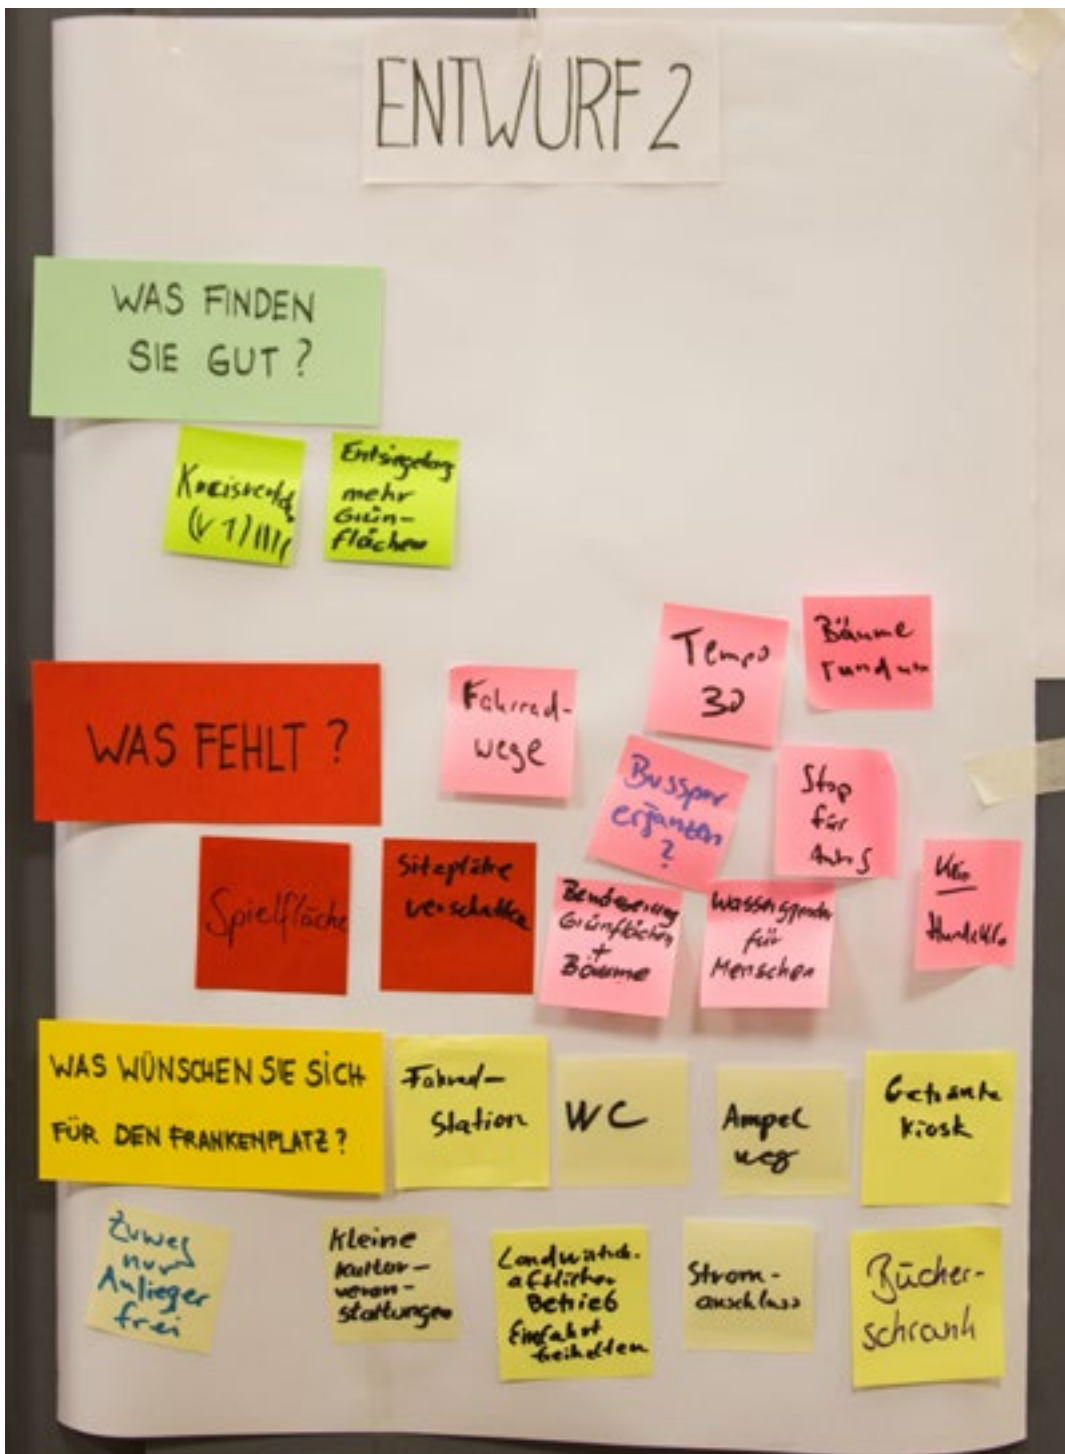 ENTWURF 2
WAS FINDEN
SIE GUT ?
(V 1) IIII
mehr
Grün-
flächen
WAS FEHLT ?
Fahrrad-
wege
Tempo
30
Bäume
rundum
Busspur
ergänzen
?
Stop
für
Autos
Spielfläche
Sitzplätze
verschatten
Bewässerung
Grünflächen
+
Bäume
Wasserspender
für
Menschen
Kein
Hundeklo
WAS WÜNSCHEN SIE SICH
FÜR DEN FRANKENPLATZ ?
Fahrrad-
Station
WC
Ampel
weg
Getränke
kiosk
Zuweg
nur
Anlieger
frei
Kleine
Kultur-
veran-
staltungen
Landwirtsch-
aftlicher
Betrieb
Einfahrt
Strom-
anschluss
Bücher-
schrank